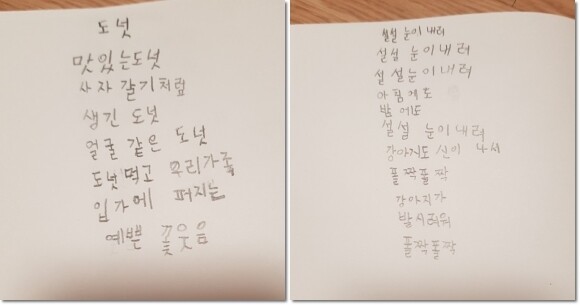 도넛
맛있는도넛
사자 갈기처럼
생긴 도넛
얼굴 같은 도넛
도넛먹고 우리가족
입가에 퍼지는
예쁜 꽃웃음
설설 눈이 내려
설설 눈이내려
설설눈이내려
아침게도
밤에도
설설 눈이내려
강아지도 신이 나서
폴짝폴짝
강아지가
발시려워
폴짝폴짝